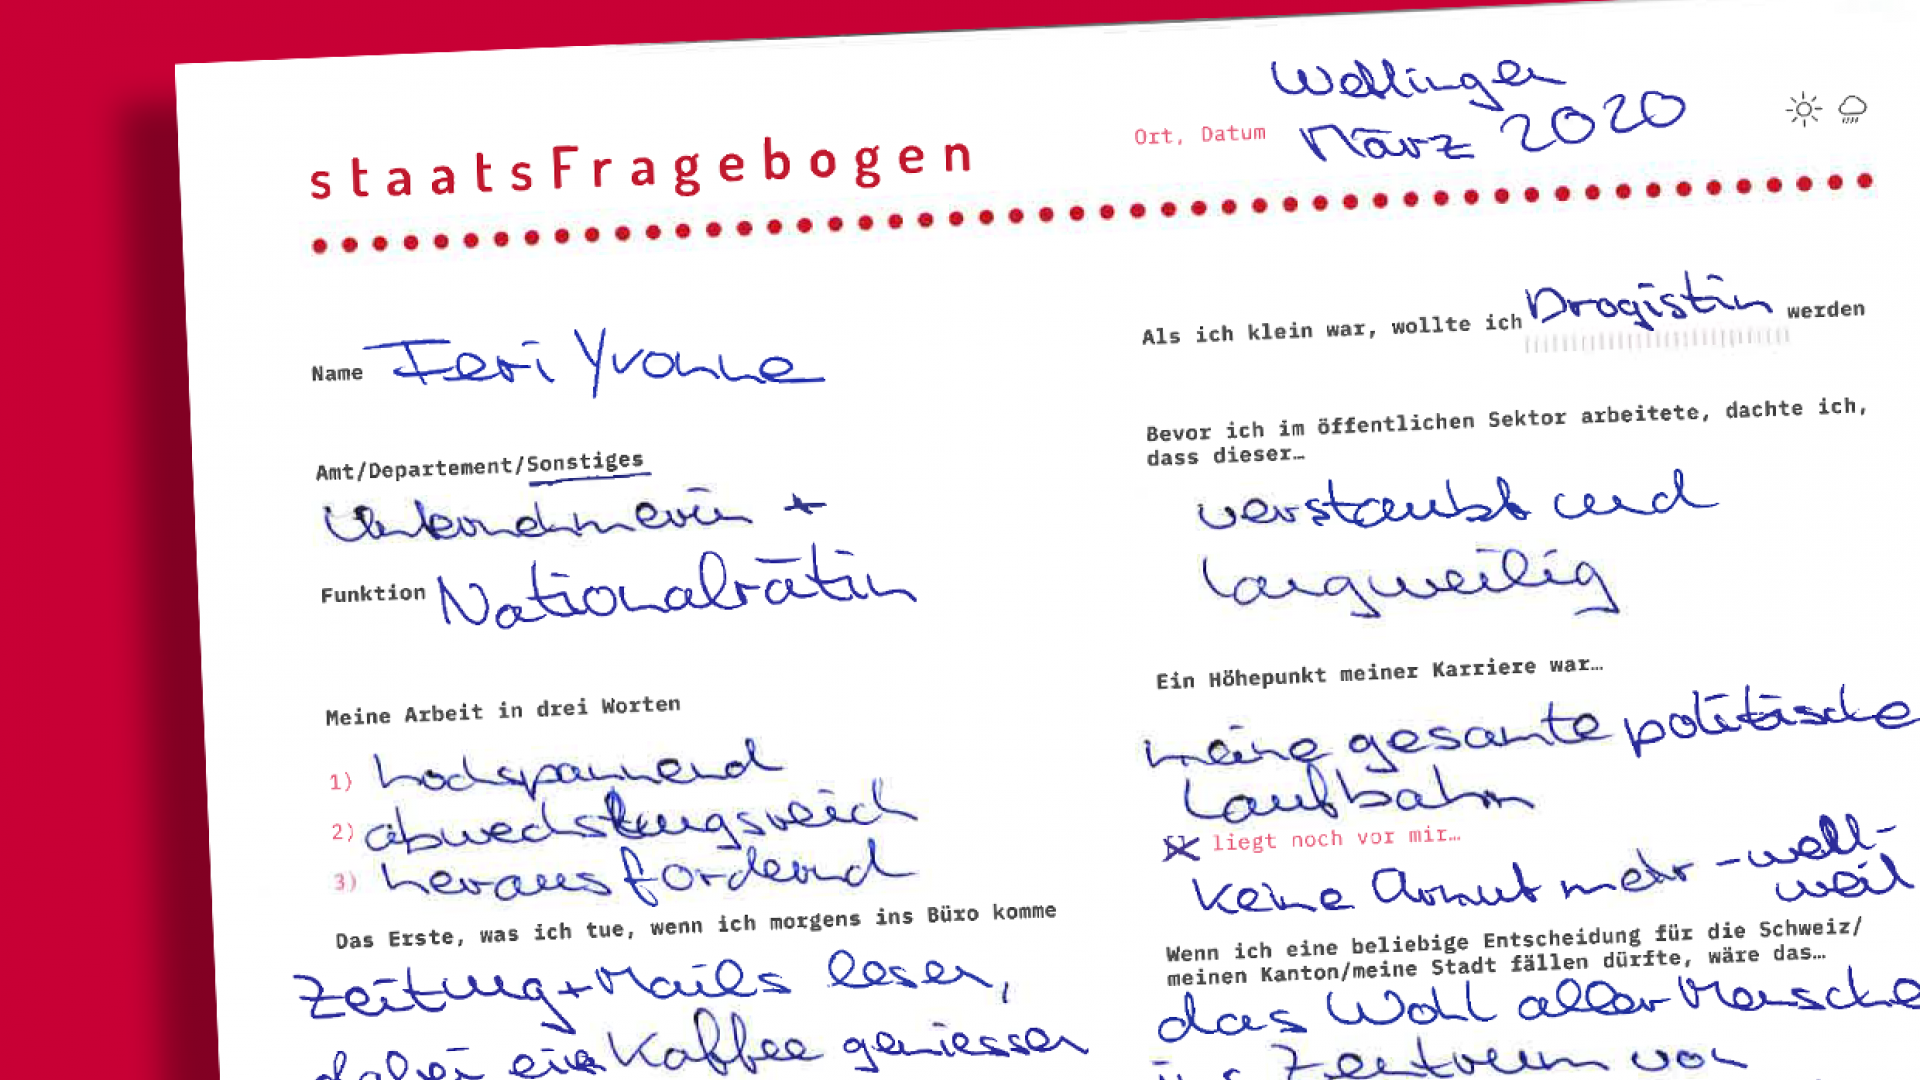 staatsFragebogen
Ort, Datum
Wettingen
März 2020
Name Feri Yvonne
Amt/Departement/Sonstiges
Unternehmerin +
Funktion Nationalrätin
Meine Arbeit in drei Worten
1) hochspannend
2) abwechslungsreich
3) herausfordernd
Das Erste, was ich tue, wenn ich morgens ins Büro komme
Zeitung + Mails lesen,
dabei ein Kaffee geniessen
Als ich klein war, wollte ich Drogistin werden
Bevor ich im öffentlichen Sektor arbeitete, dachte ich,
dass dieser…
verstaubt und
langweilig
Ein Höhepunkt meiner Karriere war…
meine gesamte politische
Laufbahn
liegt noch vor mir…
keine Armut mehr - welt-
weit
Wenn ich eine beliebige Entscheidung für die Schweiz/
meinen Kanton/meine Stadt fällen dürfte, wäre das…
das Wohl aller Mensche
ins Zentrum von